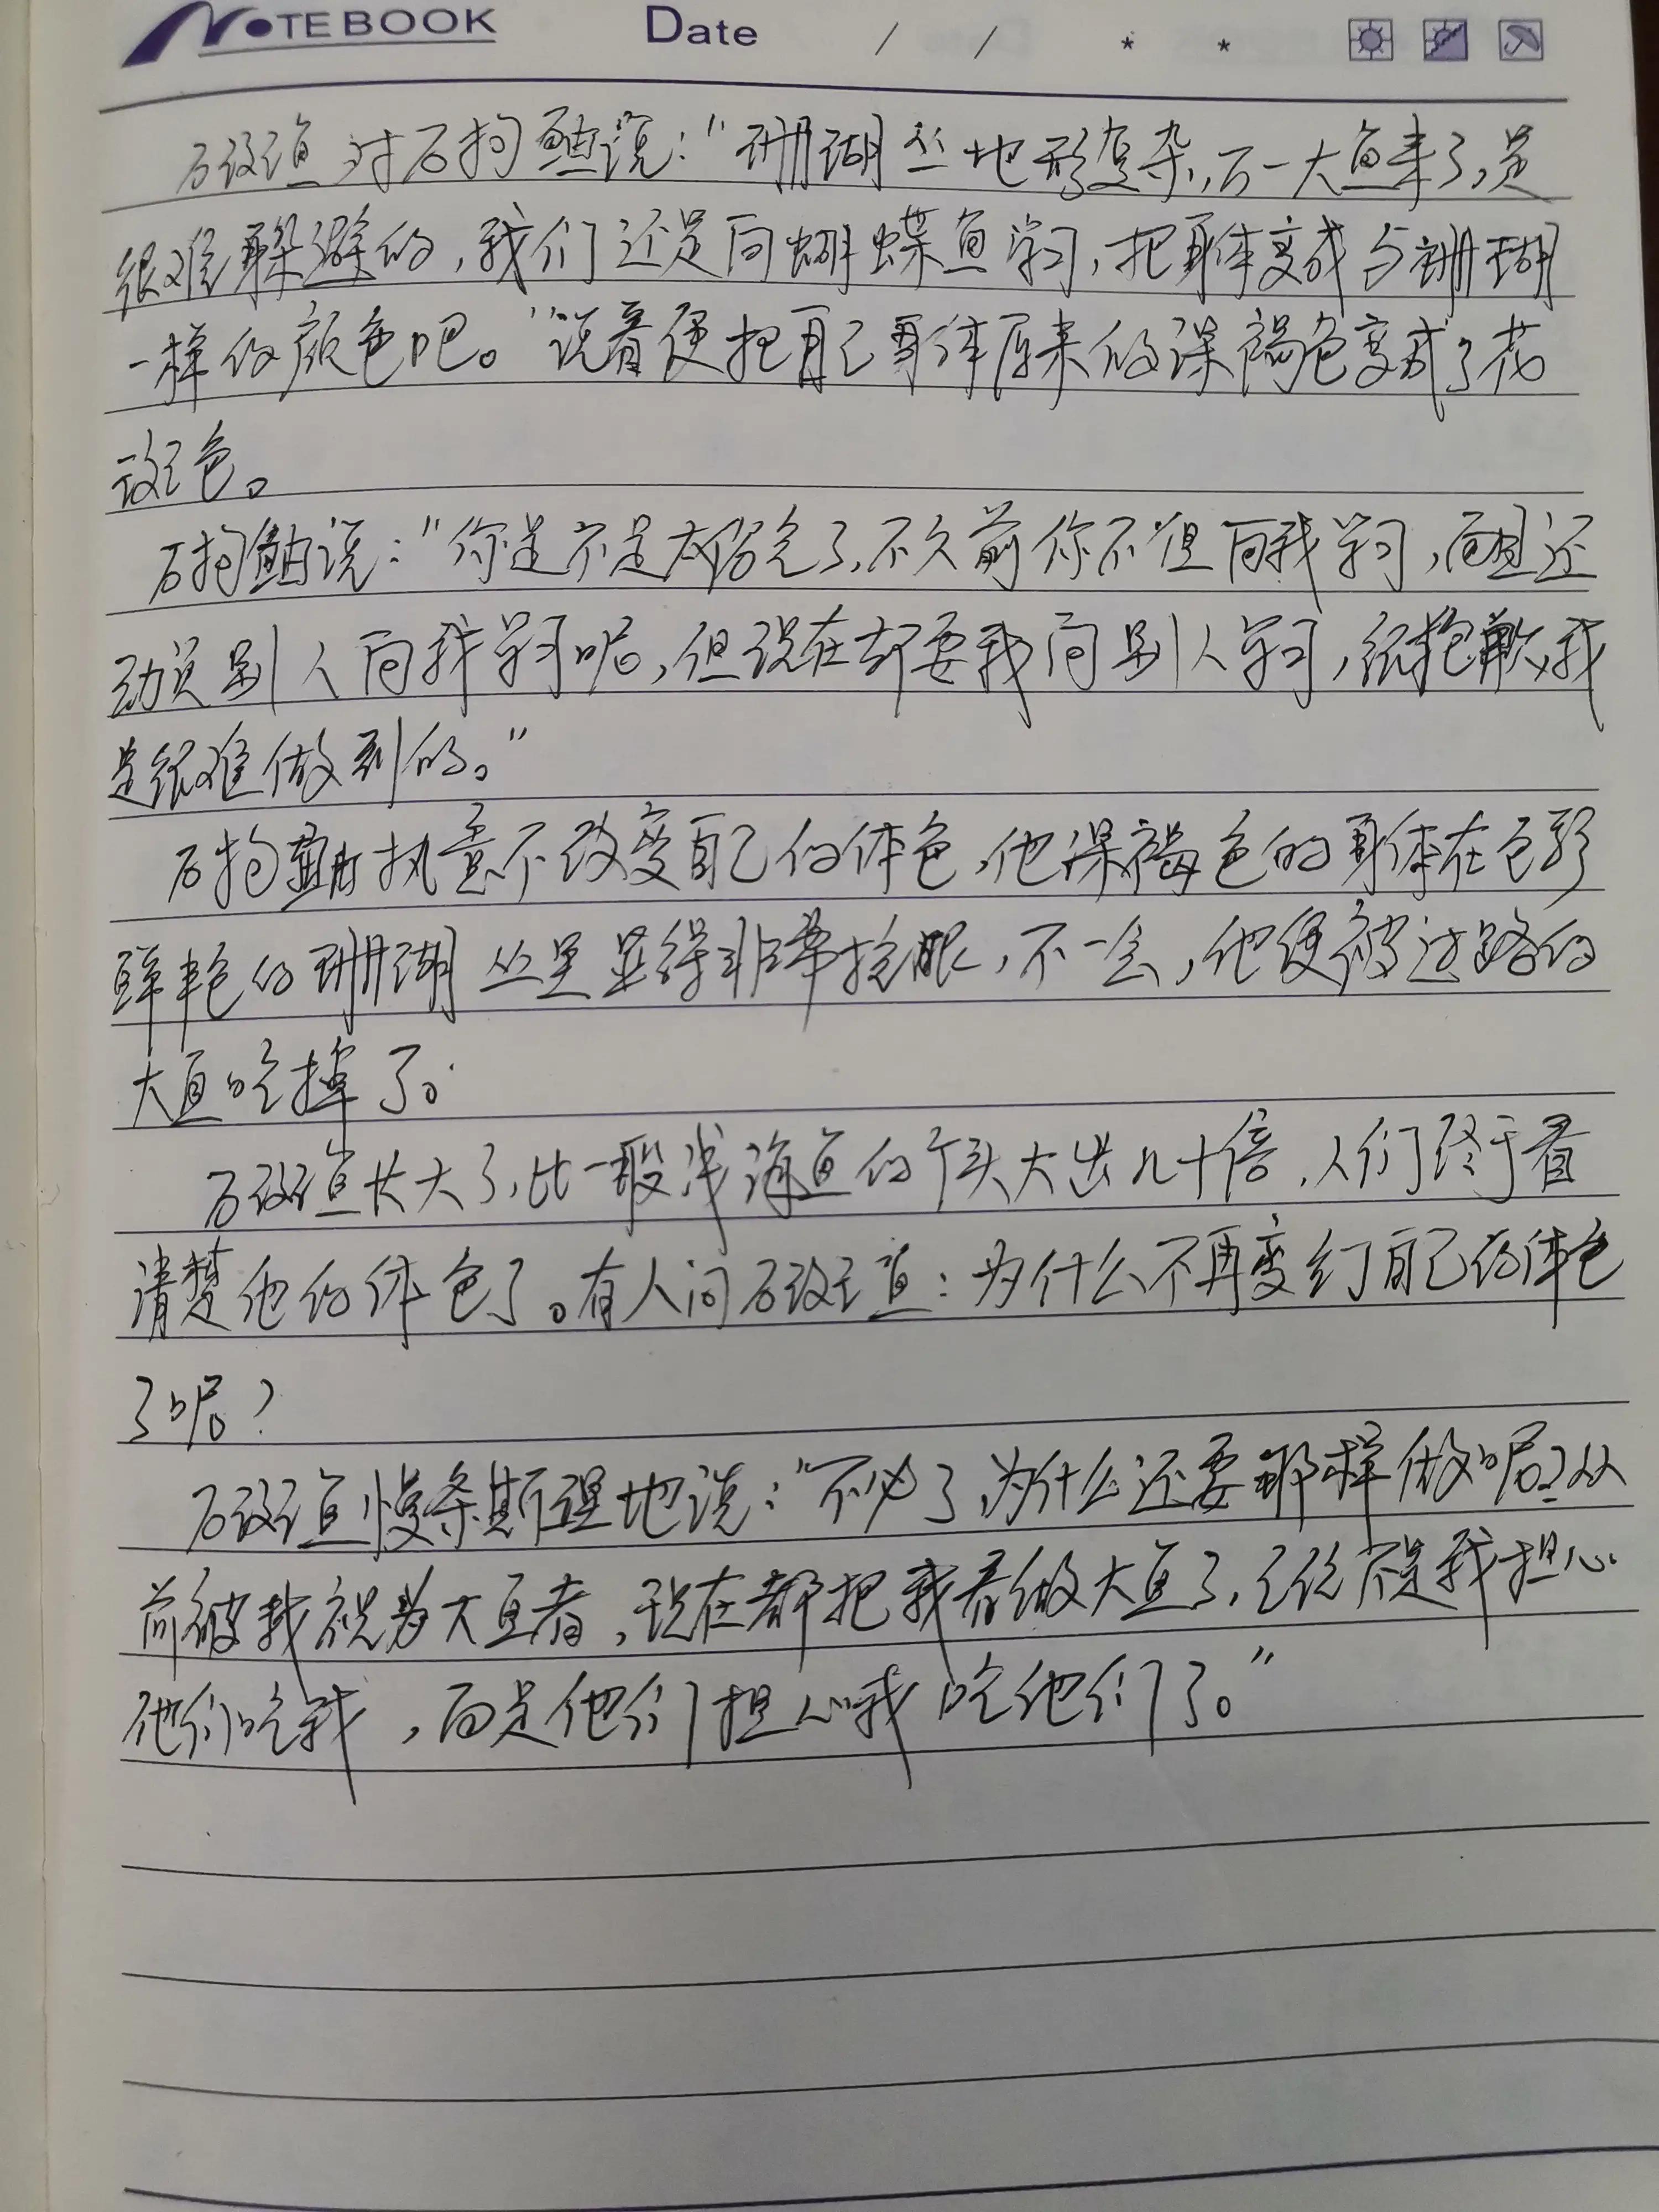 NOTEBOOK Date / / * *
石斑鱼对石狗鱼说："珊瑚丛地形复杂,万一大鱼来了,是
很难躲避的,我们还是向蝴蝶鱼学习,把身体变成与珊瑚
一样的颜色吧。"说着便把自己身体原来的深褐色变成了花
斑色。
石狗鱼说："你是不是太俗气了,不久前你不但向我学习,而且还
动员别人向我学习呢,但现在却要我向别人学习,很抱歉,我
是很难做到的。"
石狗鱼执意不改变自己的体色,他深褐色的身体在色彩
鲜艳的珊瑚丛里显得非常抢眼,不一会,他便被过路的
大鱼吃掉了。
石斑鱼长大了,比一般浅海鱼的个头大出几十倍,人们终于看
清楚他的体色了。有人问石斑鱼：为什么不再变幻自己的体色
了呢？
石斑鱼慢条斯理地说："不必了,为什么还要那样做呢？从
前被我视为大鱼者,现在都把我看做大鱼了,已经不是我担心
他们吃我,而是他们担心我吃他们了。"